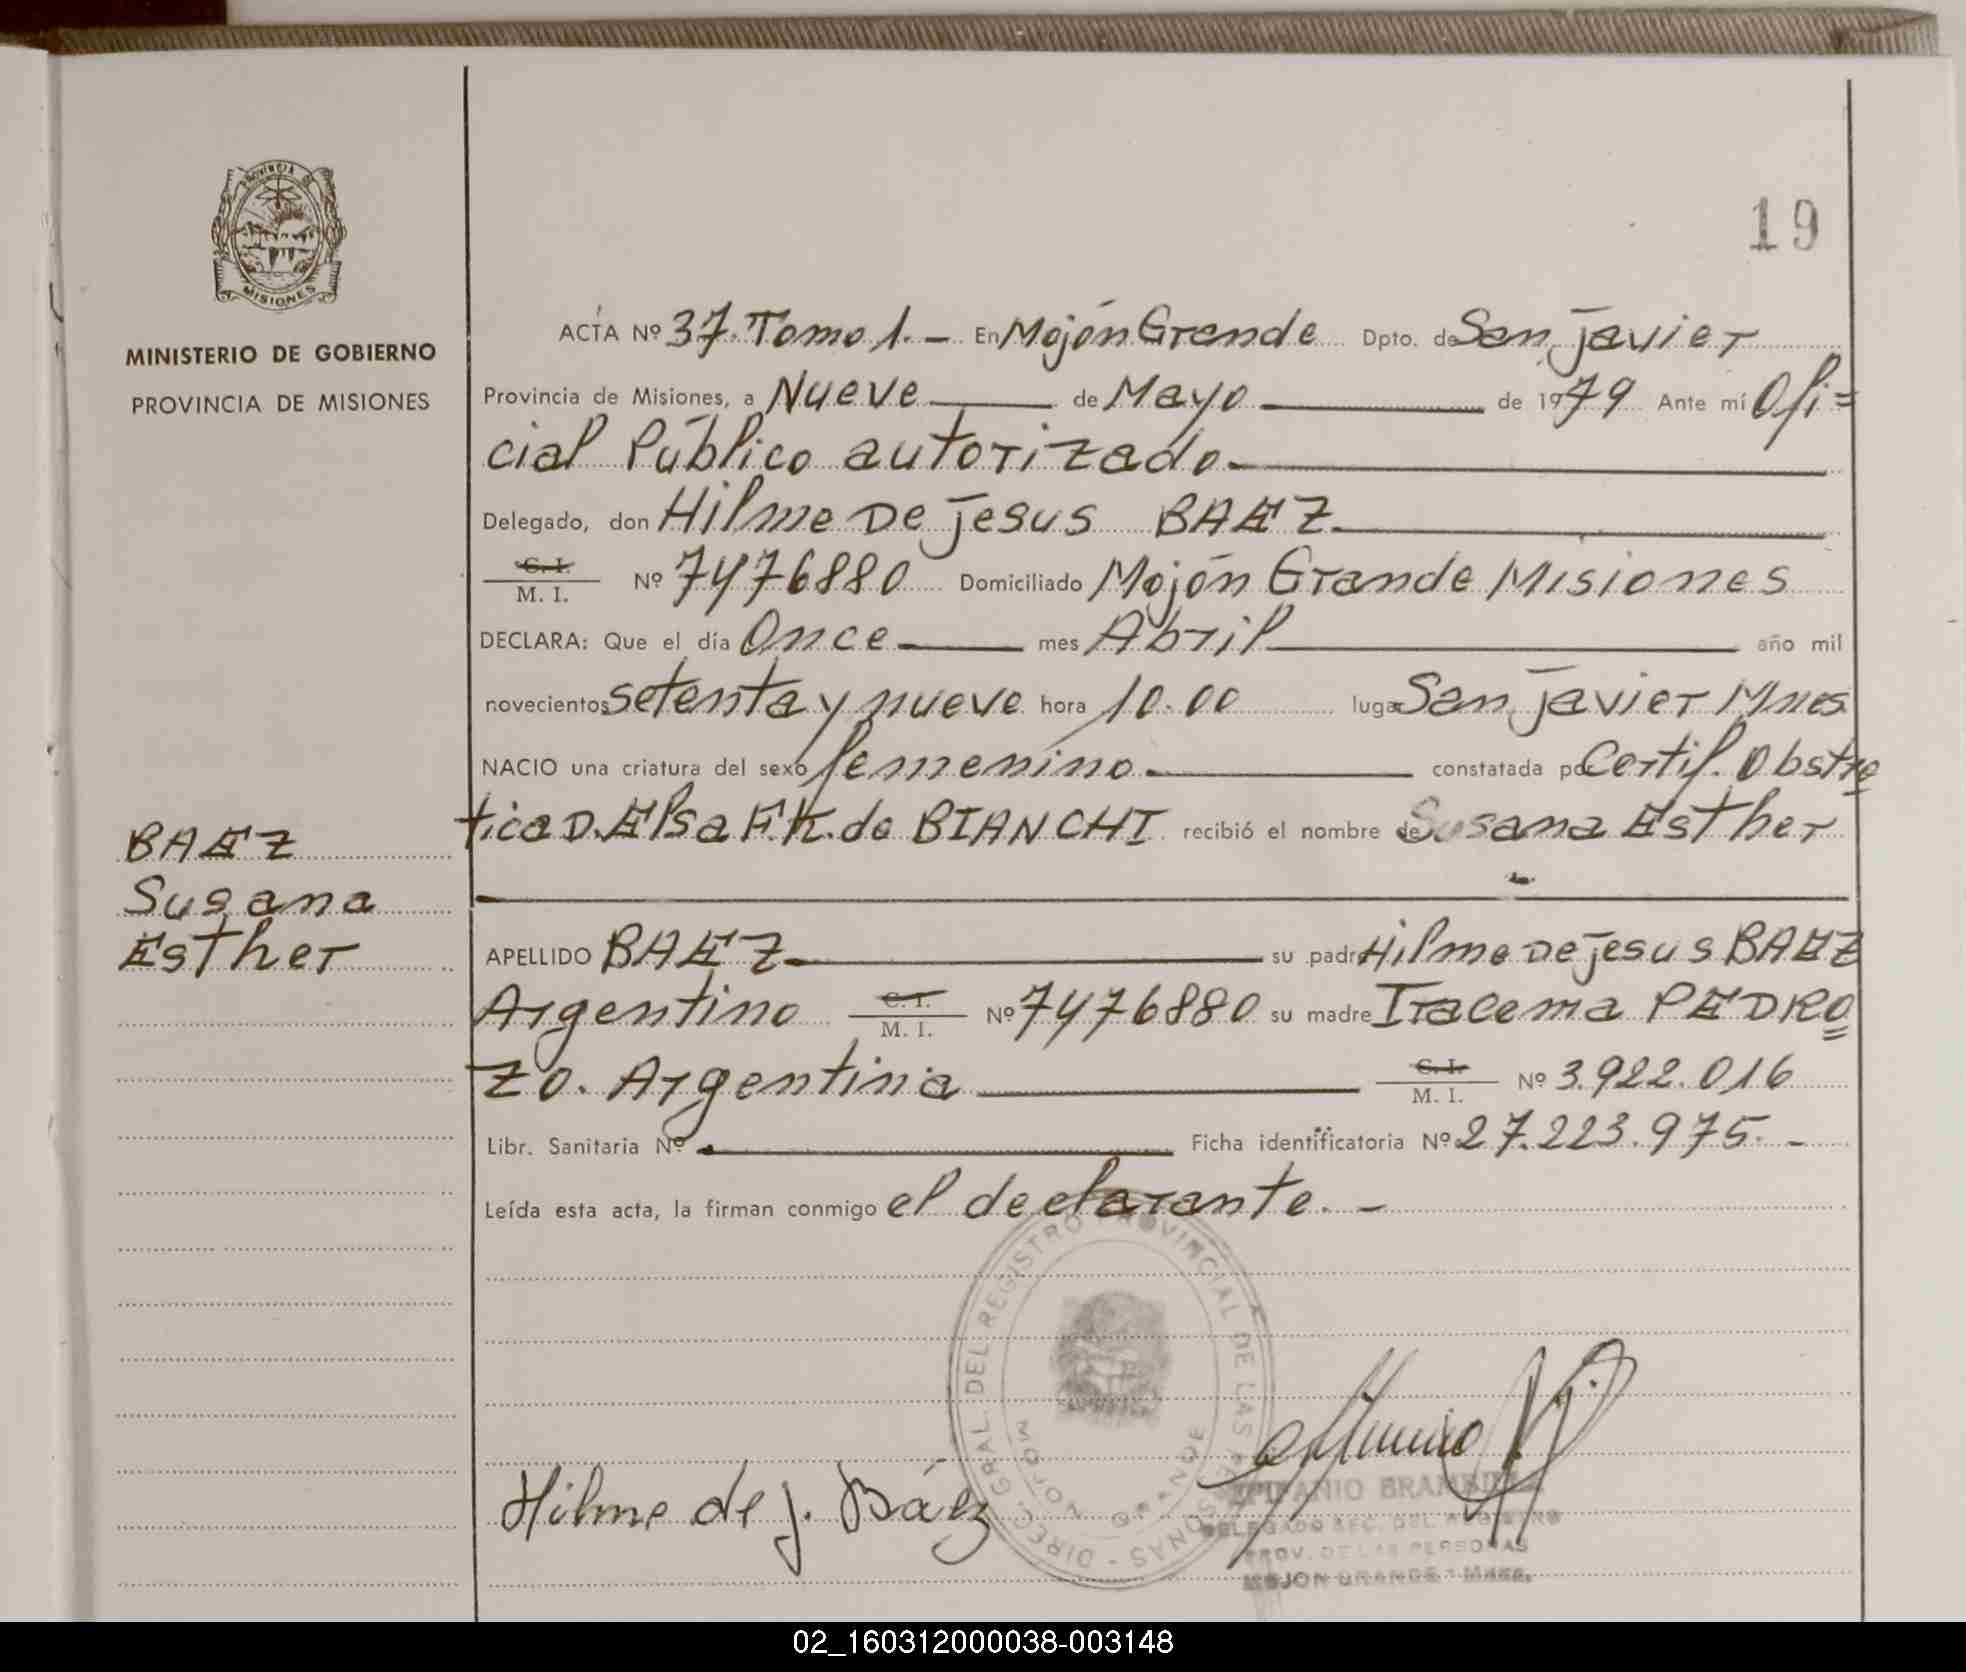 19
PROVINCIA DE
MISIONES
MINISTERIO DE GOBIERNO
PROVINCIA DE MISIONES
ACTA Nº 37. Tomo 1. – En Mojón Grande Dpto. de San Javier
Provincia de Misiones, a Nueve de Mayo de 1979 Ante mí Ofi=
cial Público autorizado.
Delegado, don Hilme De Jesus BAEZ
C. I.
M. I. Nº 7476880 Domiciliado Mojón Grande Misiones
DECLARA: Que el día Once mes Abril año mil
novecientos setenta y nueve hora 10.00 lugar San Javier Mnes
NACIO una criatura del sexo femenino constatada por Certif. Obste
tica D. Elsa F. K. de BIANCHI recibió el nombre de Susana Esther
BAEZ
Susana
Esther
APELLIDO BAEZ su padre Hilme De Jesus BAEZ
Argentino C. I.
M. I. Nº 7476880 su madre Iracema PEDRO
ZO. Argentina C. I.
M. I. Nº 3.922.016
Libr. Sanitaria Nº Ficha identificatoria Nº 27.223.975. –
Leída esta acta, la firman conmigo el declarante. –
DIREC. GRAL. DEL REGISTRO PROVINCIAL DE LAS PERSONAS -
MOJON GRANDE
Hilme de J. Báez
EPIFANIO BRAMBILLA
DELEGADO SEC. DEL REGISTRO
PROV. DE LAS PERSONAS
MOJON GRANDE - Mnes.
02_160312000038-003148